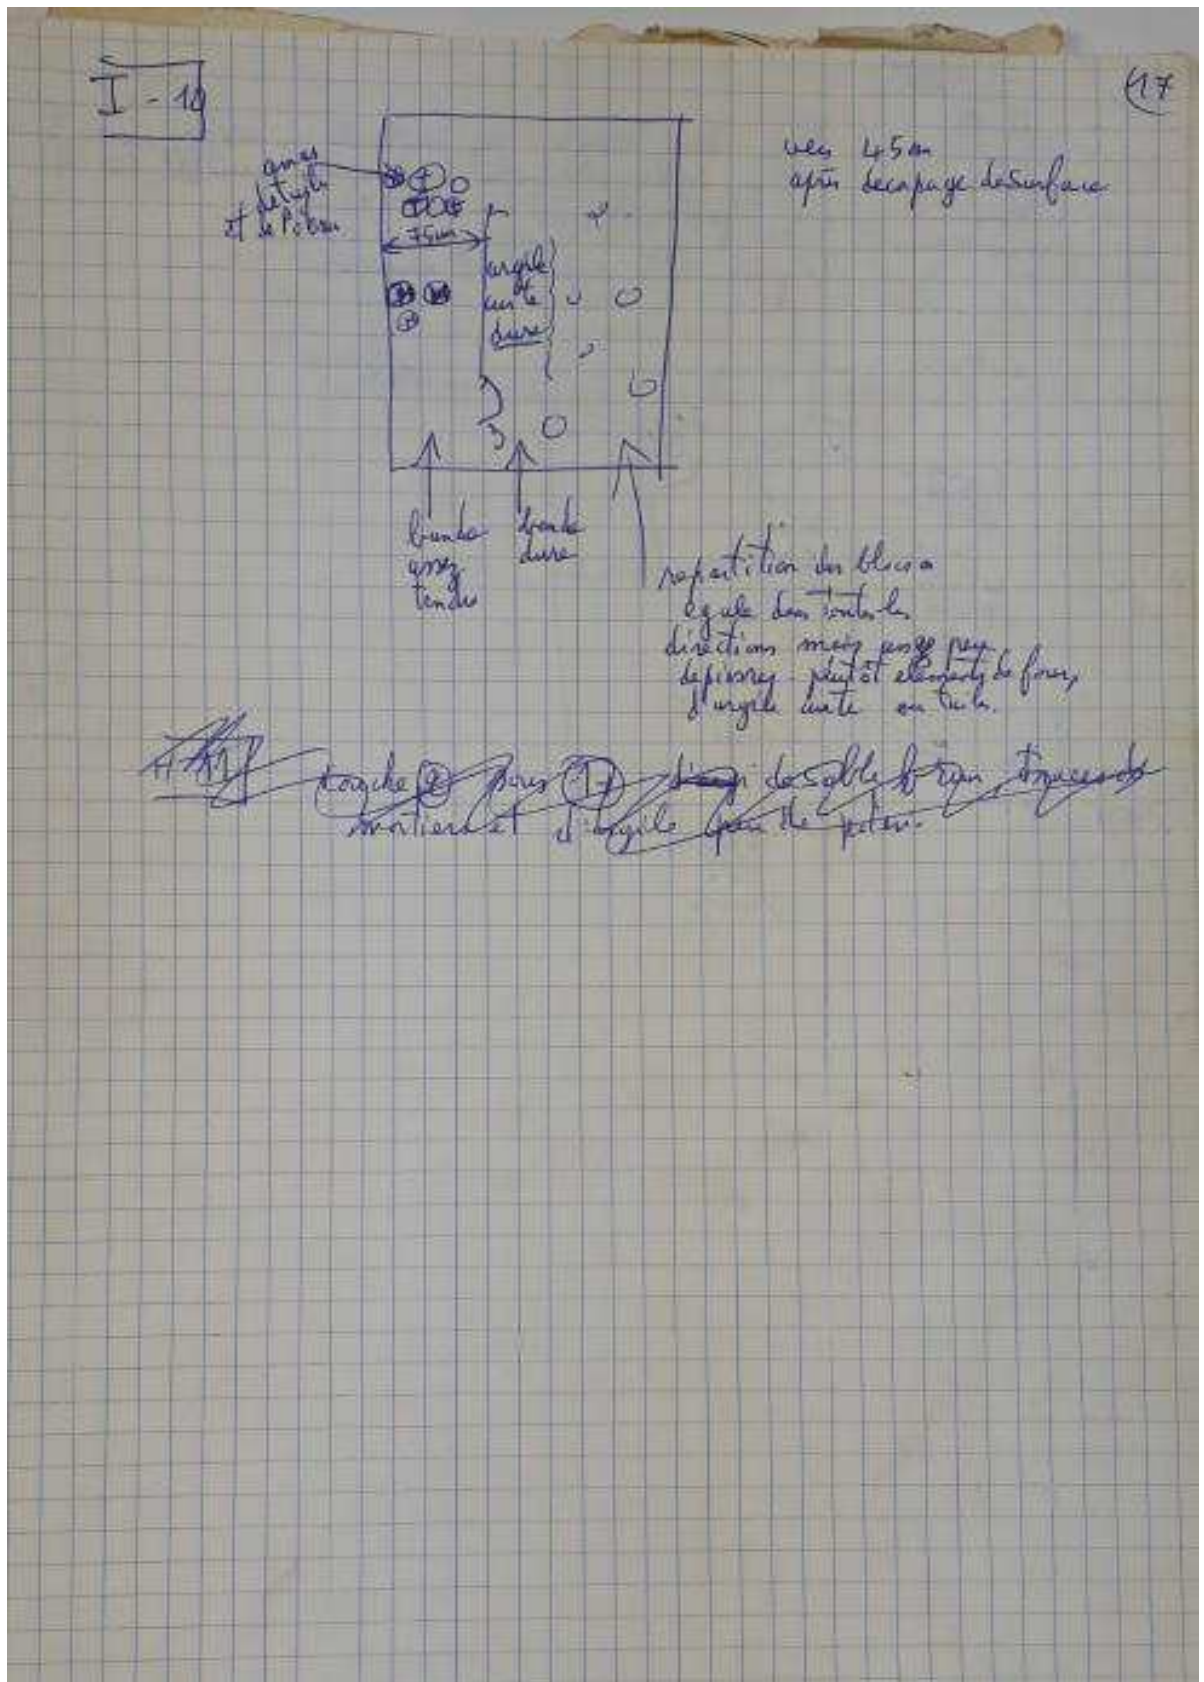 I - 10
17
vers 45 cm
après decapage de surface
amas
de tuiles
et de
75 cm
argile
cuite
dure
bande
assez
tendre
bande
dure
repartition des blocs
egale dans toutes les
directions mais assez peu
de pierres - plutôt elements de fours,
d'argile cuite ou tuiles.
H 11
couche 2 puis 1 de sable brun, traces de
mortier et d'argile peu de